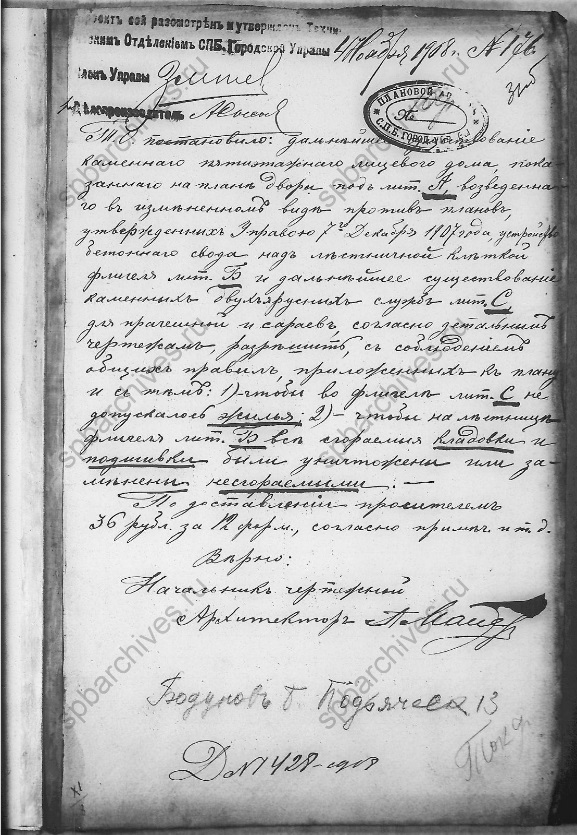 Проектъ сей разсмотрѣнъ и утвержденъ Техни-
ческимъ Отдѣленіемъ СПБ. Городской Управы 4 Ноября 1908 г. №
Членъ Управы
Дѣлопроизводитель
ПЛАНОВОЙ
№
С.П.Б. ГОРОД. УПРАВ
Т.О. постановило: дальнѣйшее существованіе
каменнаго пятиэтажнаго лицеваго дома, пока-
заннаго на планѣ двора подъ лит. А, возведенна-
го въ измѣненномъ видѣ противъ плановъ,
утвержденныхъ Управою 7го Декабря 1907 года, устройство
бетоннаго свода надъ лѣстничной клѣткой
флигеля лит. Б и дальнѣйшее существованіе
каменныхъ двухъярусныхъ службъ лит. С
для прачешной и сараевъ, согласно детальнымъ
чертежамъ, разрѣшить, съ соблюденіемъ
общихъ правилъ, приложенныхъ къ плану
и съ тѣмъ: 1) чтобы во флигелѣ лит. С не
допускалось жилья; 2) - чтобы на лѣстницѣ
флигеля лит. Б всѣ сгораемыя кладовки и
подшивки были уничтожены или за-
мѣнены несгораемыми. —
По доставленіи просителемъ
36 рубл. за 12 форм., согласно примѣч. и т. д.
Вѣрно:
Начальникъ чертежной
Архитекторъ
Бодуновъ Б. Подъяческ 13
Д № 1428 - 1908
XI
spbarchives.ru
spbarchives.ru
spbarchives.ru
spbarchives.ru
spbarchives.ru
spbarchives.ru